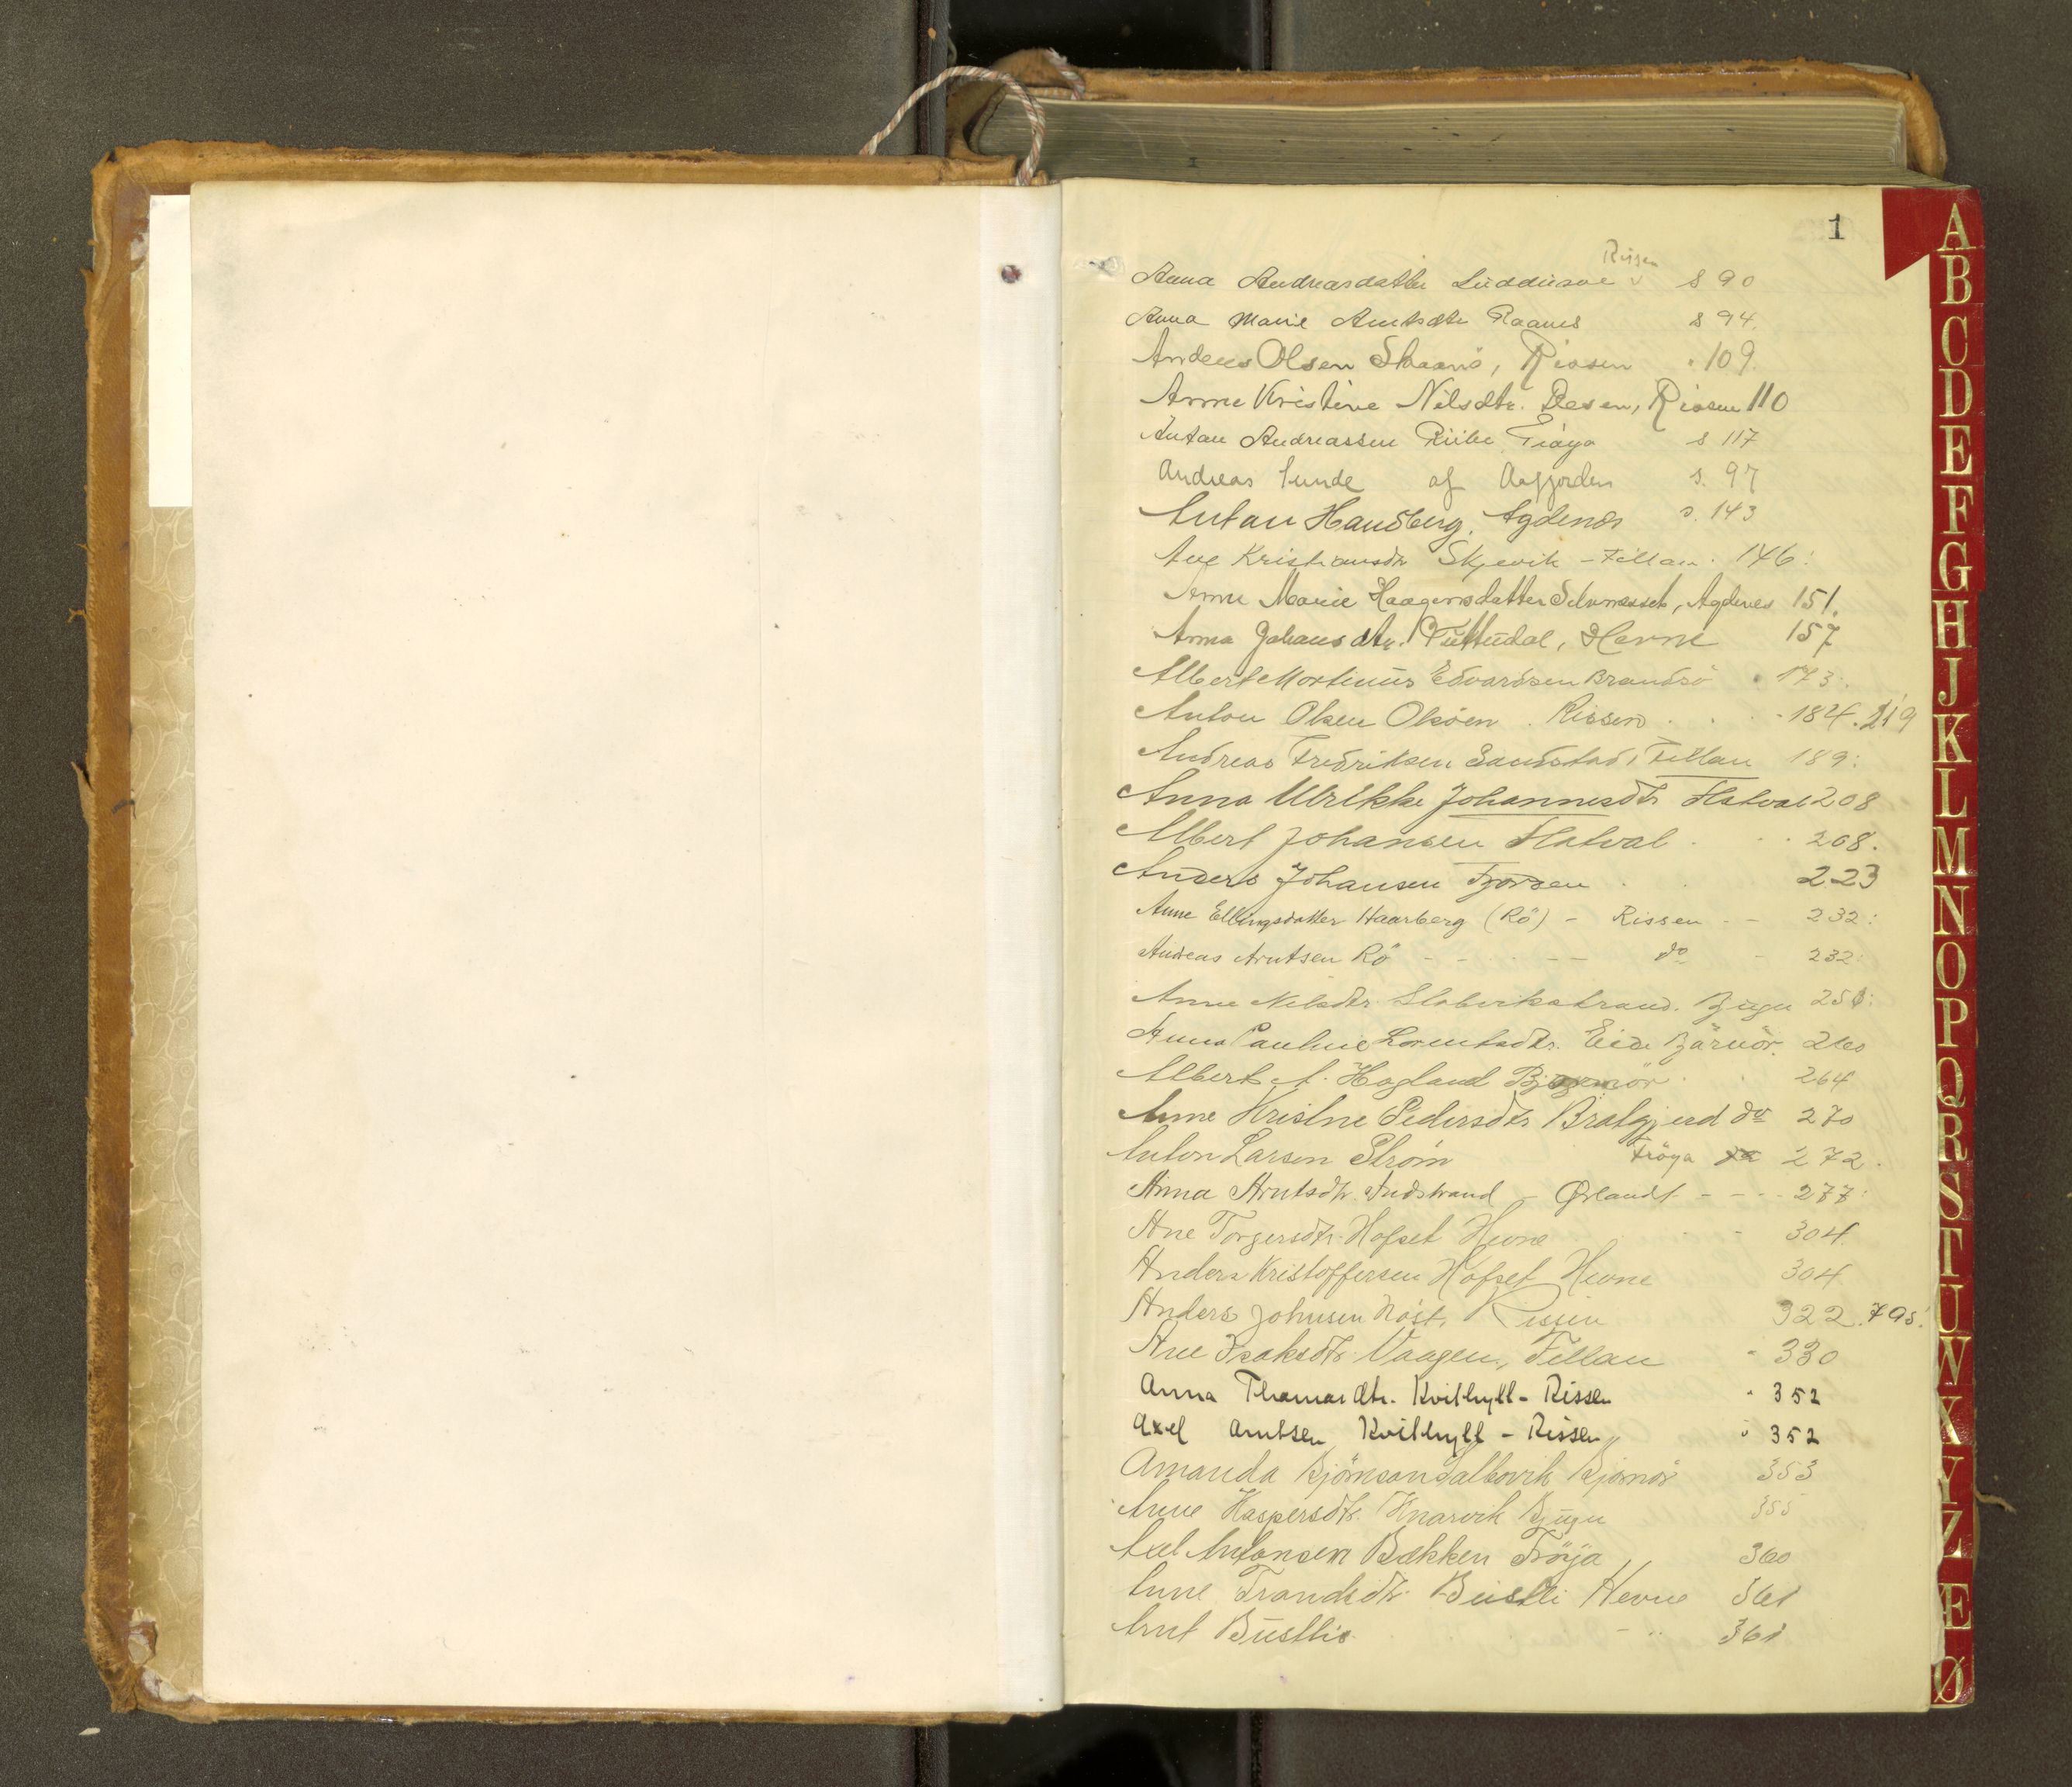 1
Rissen
Anna Andreasdatter s 90
Anna Marie Arntsdtr Raanes s 94.
Anders Olsen Skaanö, Rissen 109.
Anne Kristine Nilsdtr. Resen, Rissen 110
Antan Andreassen s 117
Andreas Lunde af Aafjorden s. 97
Antan Handberg, Agdenes s. 143
Ane Kristiansdtr Skjevik - Fillan. 146:
Anne Marie Haagensdatter Selvnesset, Agdenes 151.
Anna Johansdtr. Hevne 157
Albert Martinus Edvardsen Brandsö 173.
Anton Olsen Olsöen. Rissen 184. 219
Andreas Fredriksen Sandstad, Fillan 189:
Anna Ulrikke Johannesdtr Flatval 208
Albert Johansen Flatval 208.
Anders Johansen 223
Anne Ellingsdatter Haarberg (Rö) - Rissen - - 232:
Andreas Arntsen Rö do 232:
Anne Nilsdtr. Bjugn
Anna Pauline Lorentsdtr. Eide 260
Albert A. Hogland 264
Anne Kristine Pedersdtr Bratgjerd do 270
Anton Larsen Ström Fröya 272.
Anna Arntsdtr. Indstrand - Ørlandt - - - 277:
Ane Torgersdtr. Hofset Hevne 304.
Anders Kristoffersen Hofset Hevne 304
Anders Johnsen Nöst, Rissen 322. 795.
Ane Isaksdtr. Vaagen, Fillan 330
Anna Thomasdtr. Kvithyll - Rissen 352
Axel Arntsen Kvithyll - Rissen 352
Amanda Björnson Bjørnør 353
Anne Kaspersdtr. Knarvik Bjugn 355
Axel Antonsen Bekken Fröya 360
Anne BusTli Hevne 361
Arnt Bustli 361
A
B
C
D
E
F
G
H
J
K
L
M
N
O
P
Q
R
S
T
U
W
X
Y
Z
Æ
Ø